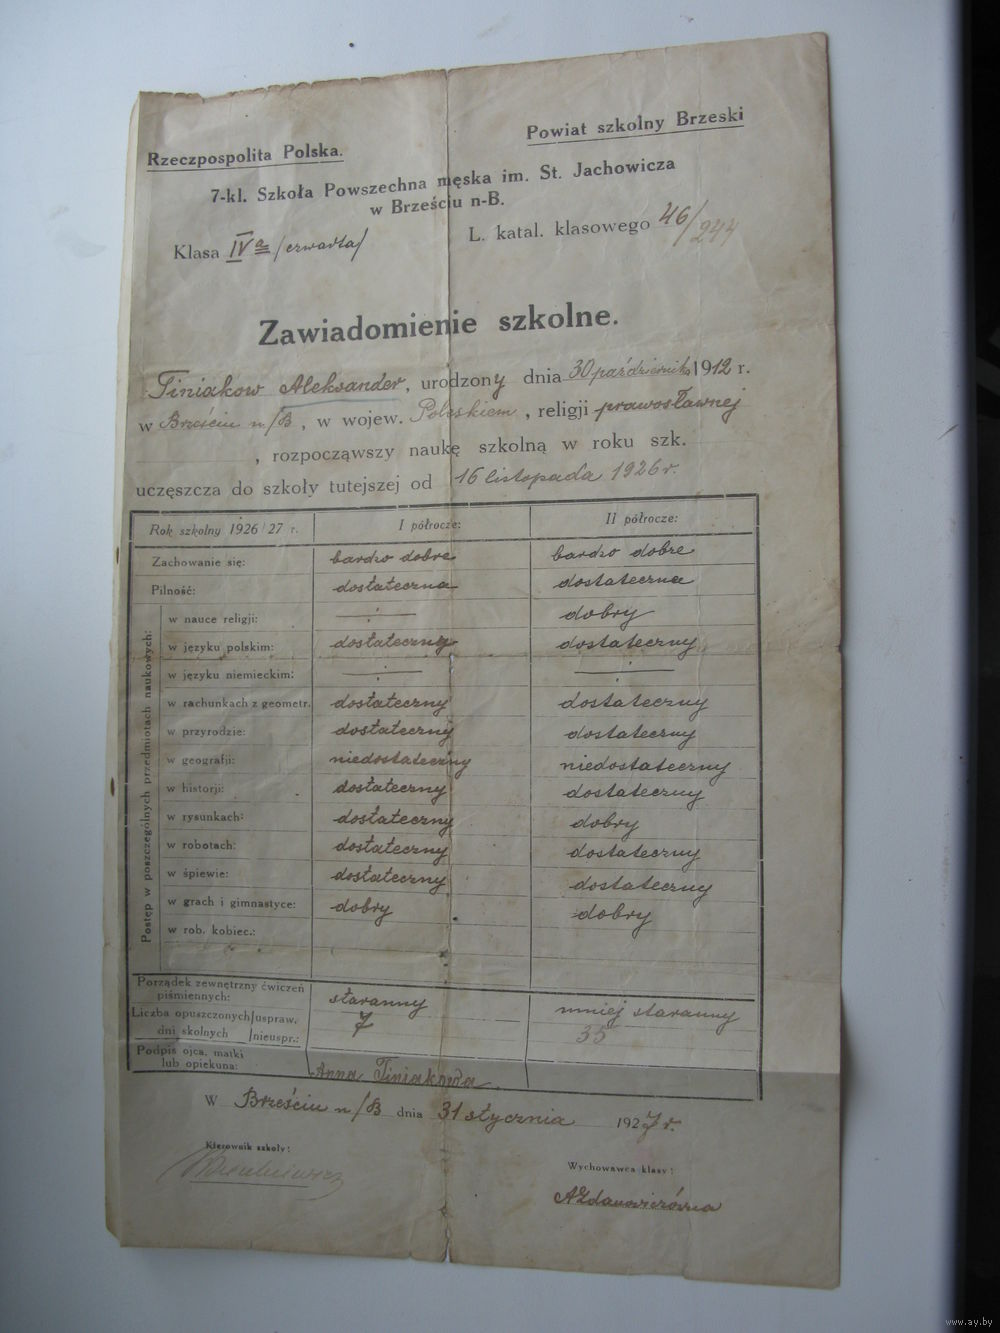 Rzeczpospolita Polska.
Powiat szkolny Brzeski
7-kl. Szkoła Powszechna męska im. St. Jachowicza
w Brześciu n-B.
Klasa IVa /czwarta/
L. katal. klasowego 46/244
Zawiadomienie szkolne.
Tiniakow Aleksander, urodzony dnia 30 października 1912 r.
w Brześciu n/B, w wojew. Poleskiem, religji prawosławnej
, rozpocząwszy naukę szkolną w roku szk.
uczęszcza do szkoły tutejszej od 16 listopada 1926 r.
Rok szkolny 1926/27 r. I półrocze: II półrocze:
Zachowanie się: bardzo dobre bardzo dobre
Pilność: dostateczna dostateczna
Postęp w poszczególnych przedmiotach naukowych:
w nauce religji: dobry
w języku polskim: dostateczny dostateczny
w języku niemieckim:
w rachunkach z geometr. dostateczny dostateczny
w przyrodzie: dostateczny dostateczny
w geografji: niedostateczny niedostateczny
w historji: dostateczny dostateczny
w rysunkach: dostateczny dobry
w robotach: dostateczny dostateczny
w śpiewie: dostateczny dostateczny
w grach i gimnastyce: dobry dobry
w rob. kobiec.:
Porządek zewnętrzny ćwiczeń
piśmiennych: staranny mniej staranny
Liczba opuszczonych/uspraw. 7 35
dni skolnych /nieuspr.:
Podpis ojca, matki
lub opiekuna: Anna Tiniakowa.
W Brześciu n/B dnia 31 stycznia 1927 r.
Kierownik szkoły:
Wychowawca klasy:
AŻdanowiczówna
www.ay.by